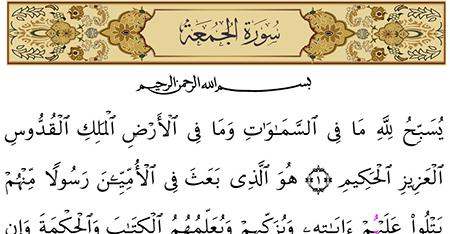 سُورَةُ الجُمُعَةِ
بسم الله الرحمن الرحيم
يُسَبِّحُ لِلَّهِ مَا فِى ٱلسَّمَـٰوَٰتِ وَمَا فِى ٱلْأَرْضِ ٱلْمَلِكِ ٱلْقُدُّوسِ
ٱلْعَزِيزِ ٱلْحَكِيمِ ﴿١﴾ هُوَ ٱلَّذِى بَعَثَ فِى ٱلْأُمِّيِّـۧنَ رَسُولًا مِّنْهُمْ
يَتْلُوا۟ عَلَيْهِمْ ءَايَـٰتِهِۦ وَيُزَكِّيهِمْ وَيُعَلِّمُهُمُ ٱلْكِتَـٰبَ وَٱلْحِكْمَةَ وَإِن